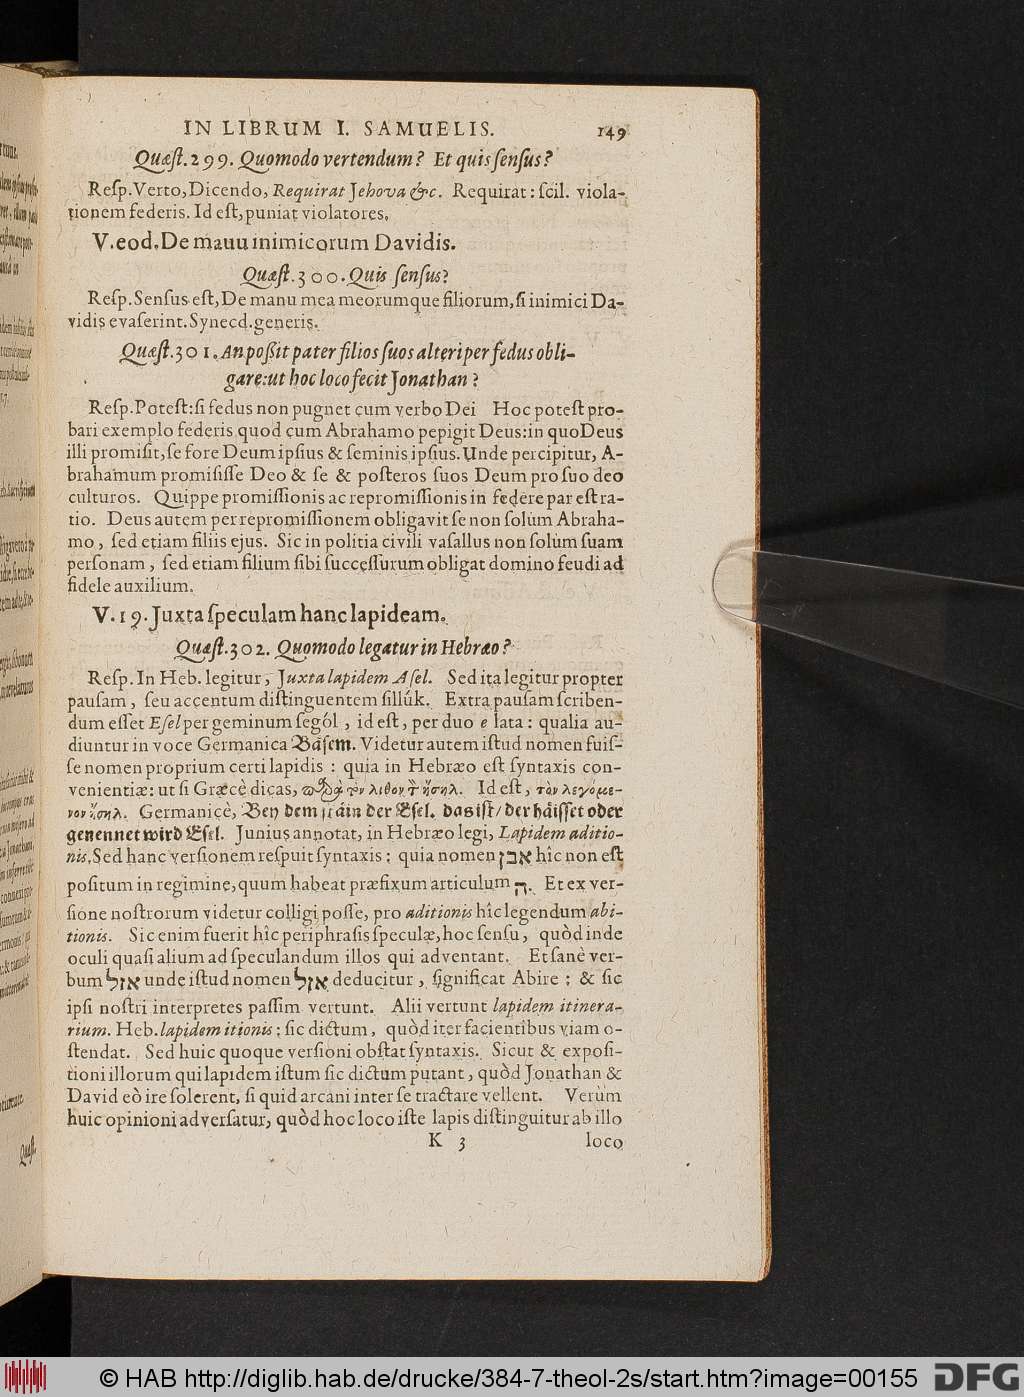 IN LIBRUM I. SAMUELIS. 149
Quæst. 299. Quomodo vertendum? Et quis sensus?
Resp. Verto, Dicendo, Requirat Jehova &c. Requirat: scil. viola-
tionem federis. Id est, puniat violatores.
V. eod. De mauu inimicorum Davidis.
Quæst. 300. Quis sensus?
Resp. Sensus est, De manu mea meorumque filiorum, si inimici Da-
vidis evaserint. Synecd. generis.
Quæst. 301. An poßit pater filios suos alteri per fedus obli-
gare: ut hoc loco fecit Jonathan?
Resp. Potest: si fedus non pugnet cum verbo Dei Hoc potest pro-
bari exemplo federis quod cum Abrahamo pepigit Deus: in quo Deus
illi promisit, se fore Deum ipsius & seminis ipsius. Unde percipitur, A-
brahamum promisisse Deo & se & posteros suos Deum pro suo deo
culturos. Quippe promissionis ac repromissionis in federe par est ra-
tio. Deus autem per repromissionem obligavit se non solùm Abraha-
mo, sed etiam filiis ejus. Sic in politia civili vasallus non solùm suam
personam, sed etiam filium sibi successurum obligat domino feudi ad
fidele auxilium.
V. 19. Juxta speculam hanc lapideam.
Quæst. 302. Quomodo legatur in Hebræo?
Resp. In Heb. legitur, Juxta lapidem Asel. Sed ita legitur propter
pausam, seu accentum distinguentem sillúk. Extra pausam scriben-
dum esset Esel per geminum segól, id est, per duo e lata: qualia au-
diuntur in voce Germanica Bäsem. Videtur autem istud nomen fuis-
se nomen proprium certi lapidis: quia in Hebræo est syntaxis con-
venientiæ: ut si Græcè dicas, τὸν λίθον τ̀ ἤσηλ. Id est, τὸν λεγόμε-
νον ἤσηλ. Germanicè, Bey dem stäin der Esel. das ist / der häisset oder
genennet wird Esel. Junius annotat, in Hebræo legi, Lapidem aditio-
nis. Sed hanc versionem respuit syntaxis: quia nomen אבן hîc non est
positum in regimine, quum habeat præfixum articulum ה. Et ex ver-
sione nostrorum videtur colligi posse, pro aditionis hîc legendum abi-
tionis. Sic enim fuerit hîc periphrasis speculæ, hoc sensu, quòd inde
oculi quasi alium ad speculandum illos qui adventant. Et sanè ver-
bum אזל unde istud nomen אזל deducitur, significat Abire: & sic
ipsi nostri interpretes passim vertunt. Alii vertunt lapidem itinera-
rium. Heb. lapidem itionis: sic dictum, quòd iter facientibus viam o-
stendat. Sed huic quoque versioni obstat syntaxis. Sicut & exposi-
tioni illorum qui lapidem istum sic dictum putant, quòd Jonathan &
David eò ire solerent, si quid arcani inter se tractare vellent. Verùm
huic opinioni adversatur, quòd hoc loco iste lapis distinguitur ab illo
K 3 loco
© HAB http://diglib.hab.de/drucke/384-7-theol-2s/start.htm?image=00155
DFG